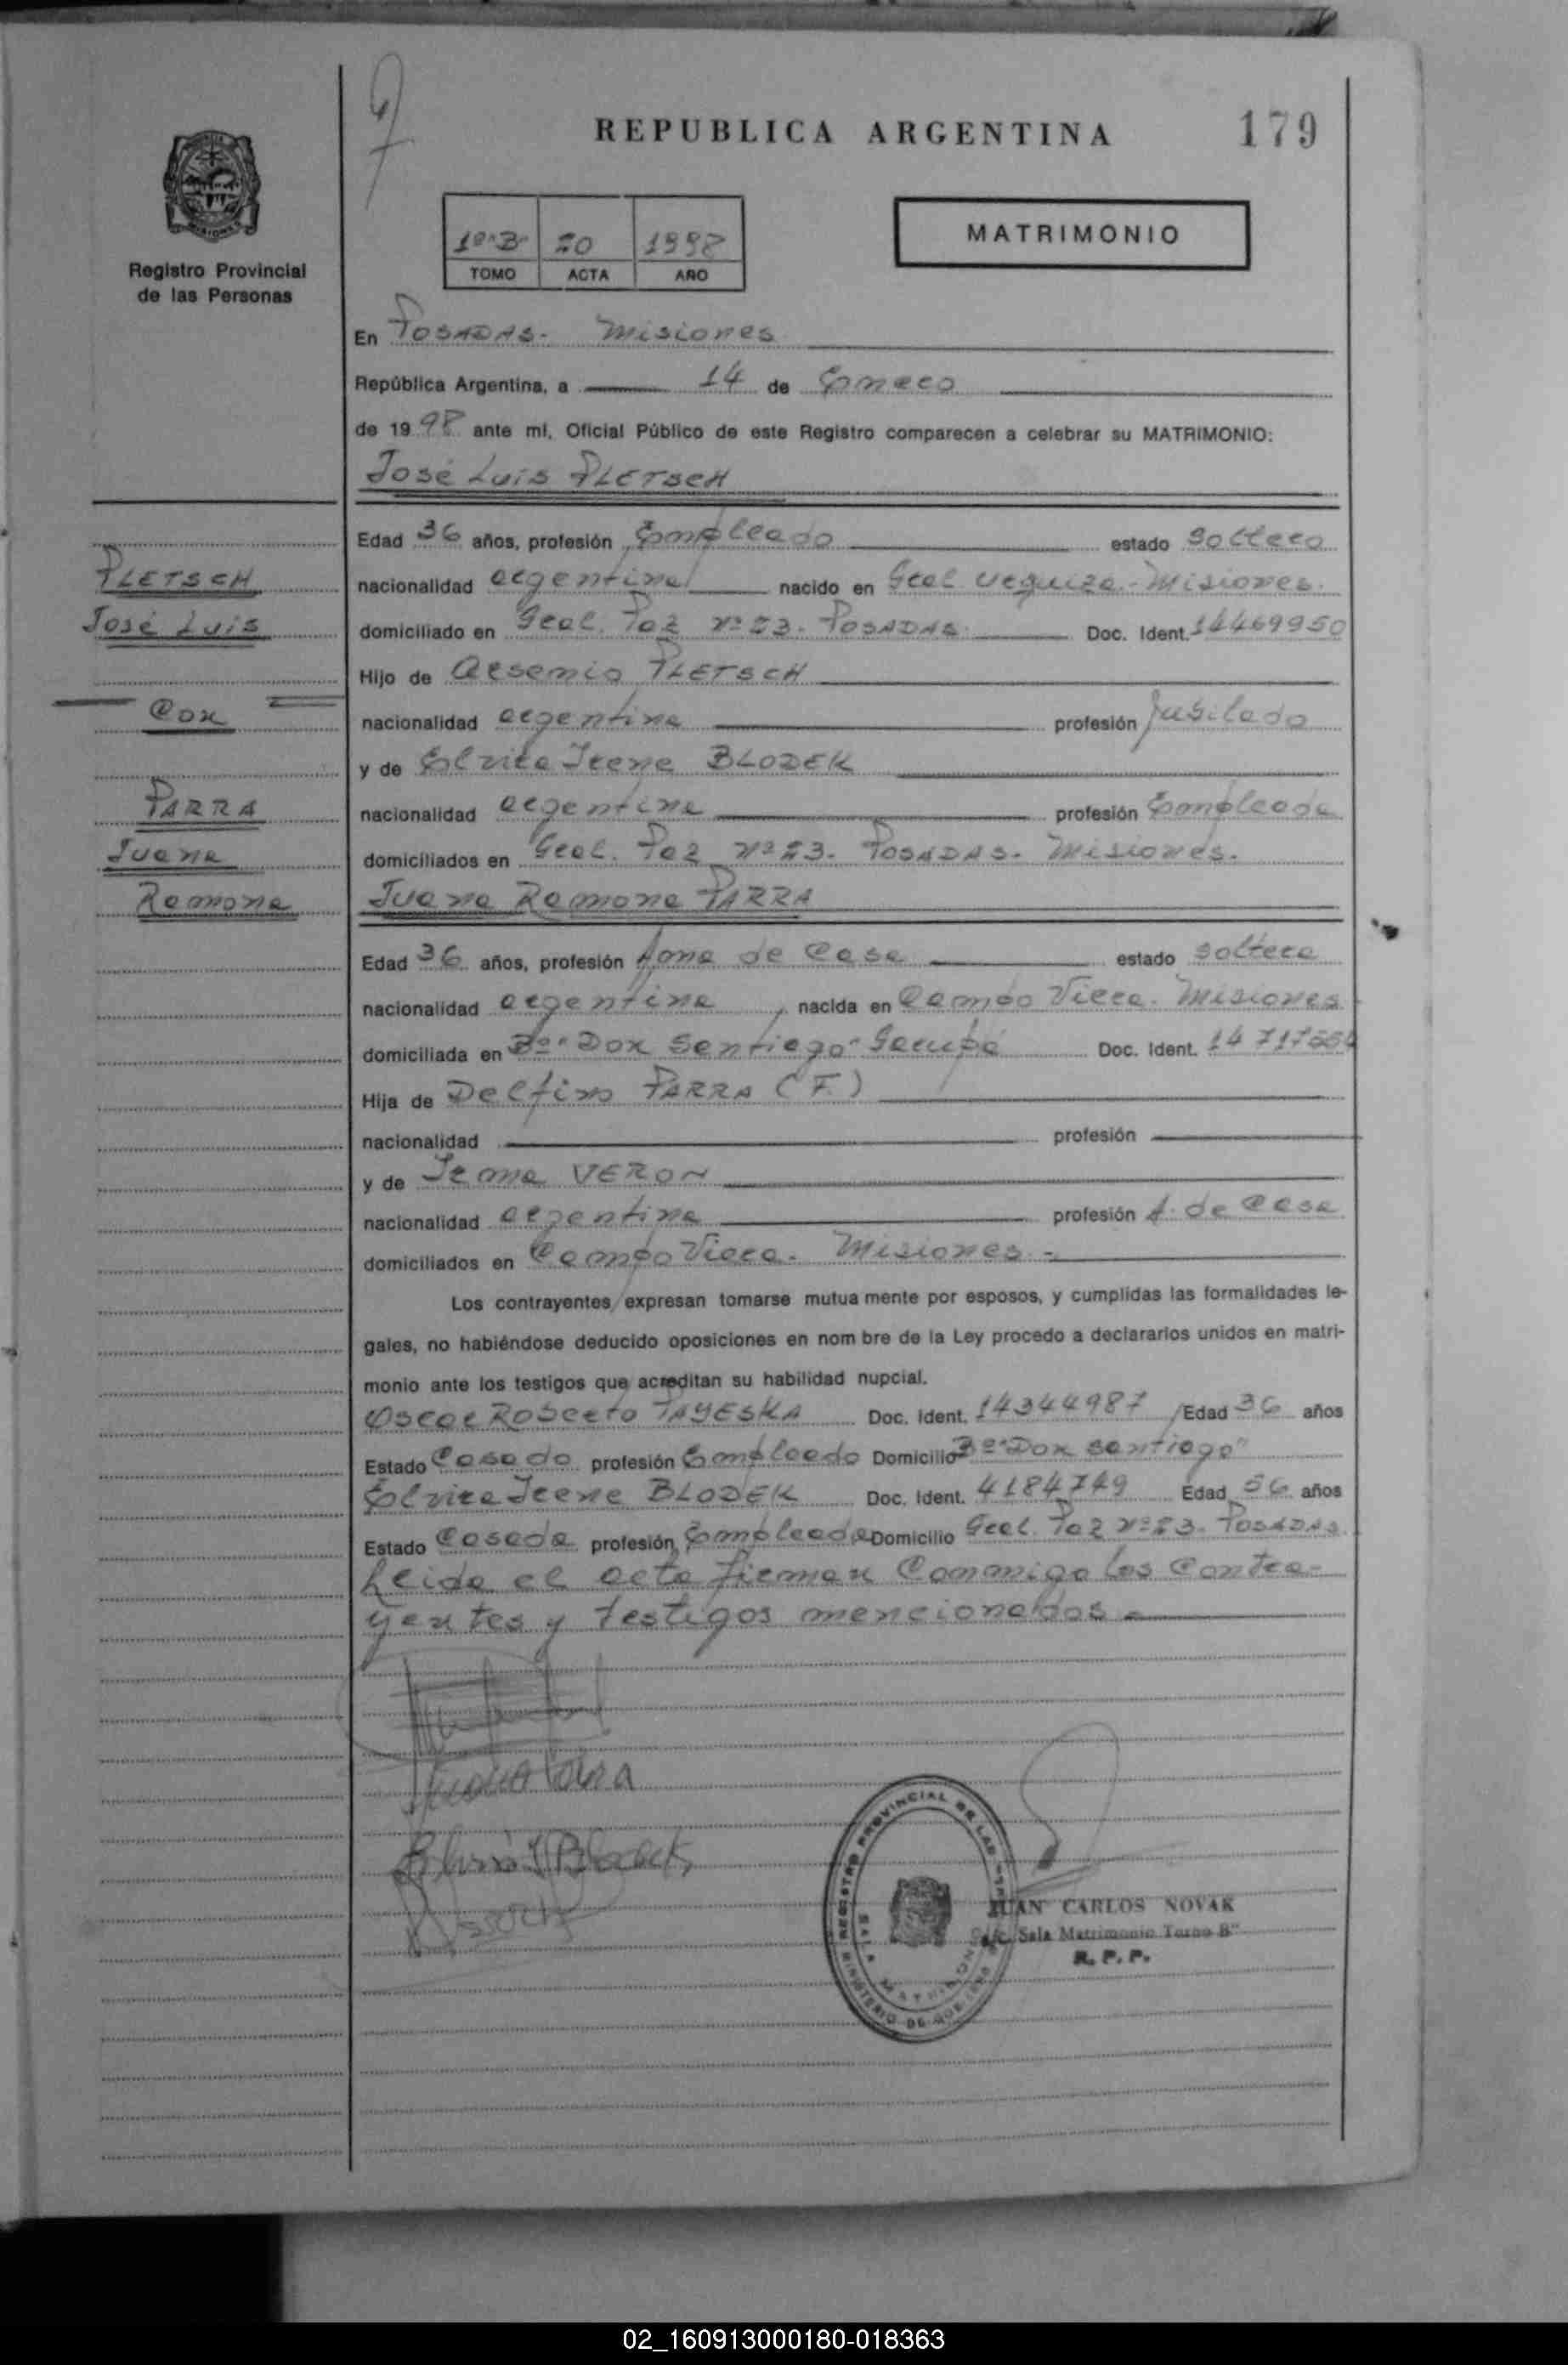 REPUBLICA ARGENTINA
179
Registro Provincial
de las Personas
1º"B" 20 1998
TOMO ACTA AÑO
MATRIMONIO
En POSADAS- Misiones
República Argentina, a 14 de Enero
de 1998 ante mí, Oficial Público de este Registro comparecen a celebrar su MATRIMONIO:
José Luis PLETSCH
Edad 36 años, profesión Empleado estado Soltero
nacionalidad argentina nacido en Gral. Urquiza.-Misiones.
domiciliado en Gral. Paz Nº 53. POSADAS. Doc. Ident. 14469950
Hijo de Arsenio PLETSCH
nacionalidad argentina profesión Jubilado
y de Elvira Irene BLODEK
nacionalidad argentina profesión Empleada
domiciliados en Gral. Paz Nº 53. POSADAS. Misiones.
Juana Ramona PARRA
PLETSCH
José Luis
Con
PARRA
Juana
Ramona
Edad 36 años, profesión Ama de Casa estado soltera
nacionalidad argentina, nacida en Campo Viera. Misiones
domiciliada en Bº"Don Santiago" Garupá Doc. Ident. 14 717
Hija de Delfino PARRA (F.)
nacionalidad profesión
y de Irma VERON
nacionalidad argentina profesión A. de Casa
domiciliados en Campo Viera. Misiones.-
Los contrayentes expresan tomarse mutua mente por esposos, y cumplidas las formalidades le-
gales, no habiéndose deducido oposiciones en nom bre de la Ley procedo a declararlos unidos en matri-
monio ante los testigos que acreditan su habilidad nupcial.
Oscar Roberto TAYESKA Doc. Ident. 14344987 Edad 36 años
Estado Casado profesión Empleado Domicilio Bº"Don Santiago"
Elvira Irene BLODEK Doc. Ident. 4184749 Edad 56 años
Estado Casada profesión Empleada Domicilio Gral. Paz Nº 53. POSADAS.
Leída el acta firman Conmigo los Contra-
yentes y testigos mencionados.-
Juana Parra
Elvira I Blodek
REGISTRO PROVINCIAL DE LAS
SALA MATRIMONIO
MINISTERIO DE GOBIERNO
JUAN CARLOS NOVAK
Sala Matrimonio Turno B"
R. P. P.
02_160913000180-018363